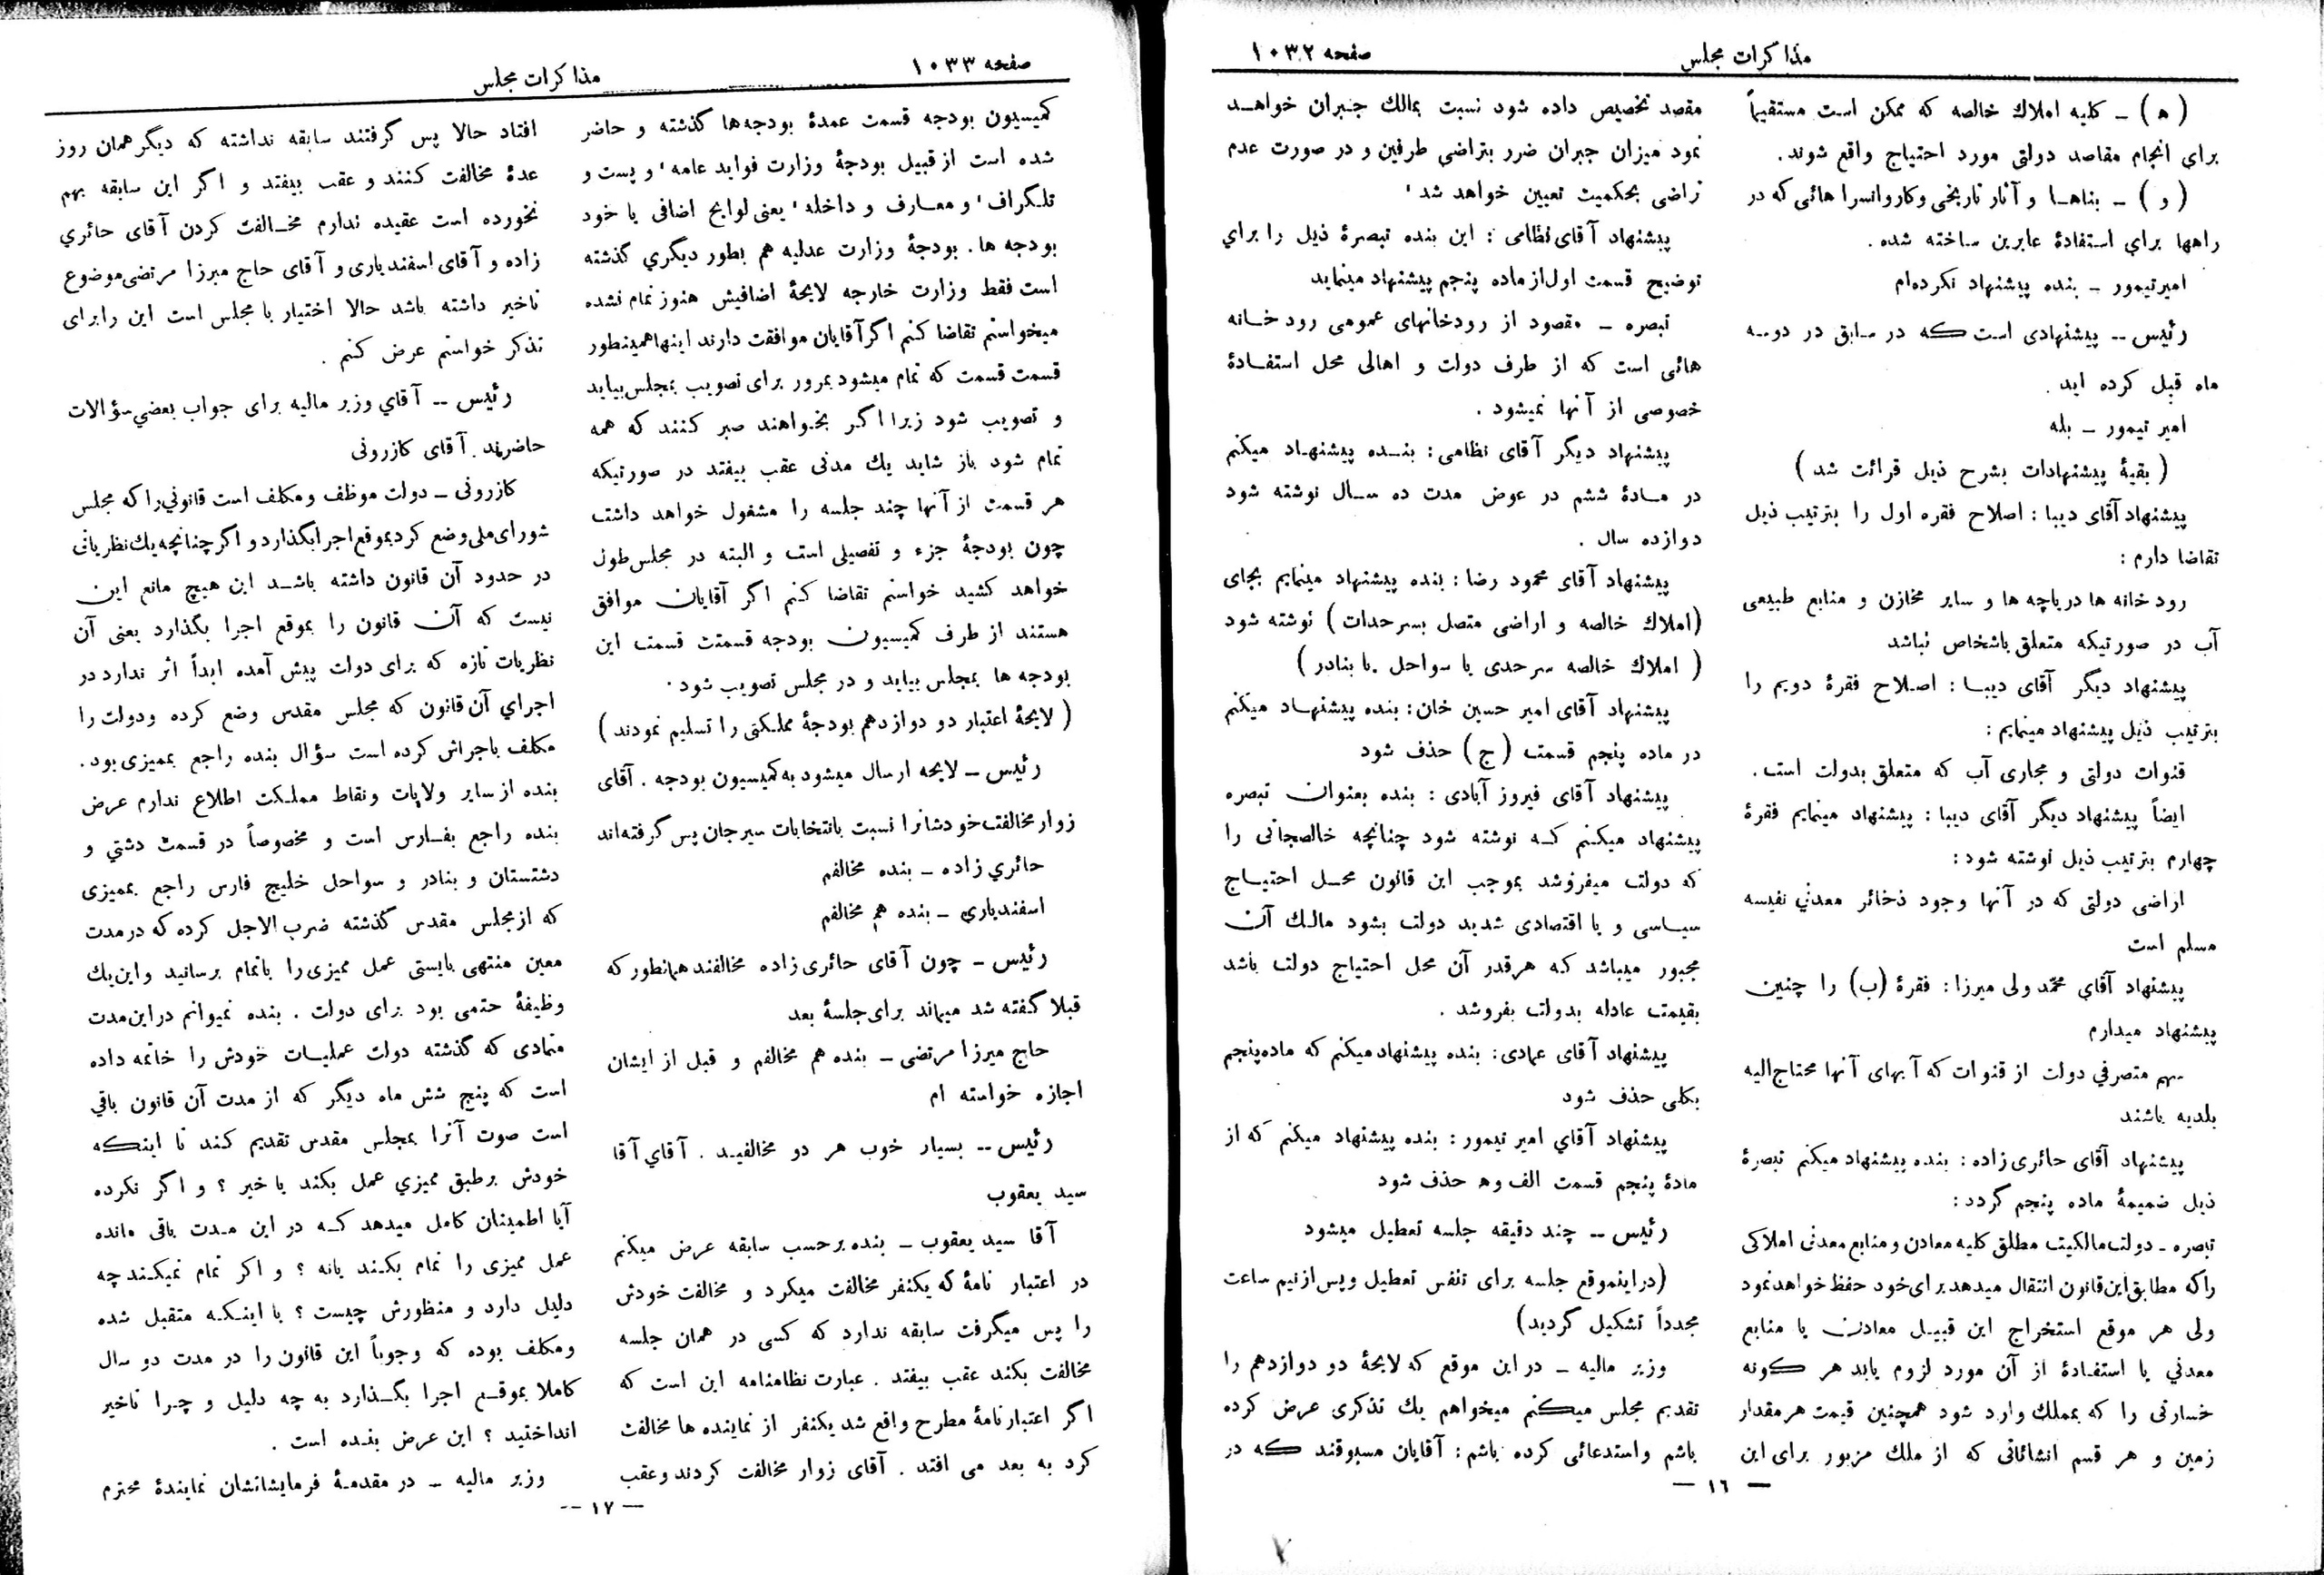 مذاکرات مجلس
صفحه ۱۰۳۲
(ه) ـ کلیه املاك خالصه که ممکن است مستقیماً
برای انجام مقاصد دولتی مورد احتیاج واقع شوند.
(و) ـ بناهـا و آثار تاریخی وکاروانسراهائی که در
راهها برای استفادهٔ عابرین ساخته شده.
امیرتیمور ـ بنده پیشنهاد نکرده‌ام
رئیس ـ پیشنهادی است که در سابق در دوسه
ماه قبل کرده اید.
امیر تیمور ـ بله
(بقیهٔ پیشنهادات بشرح ذیل قرائت شد)
پیشنهاد آقای دیبا : اصلاح فقره اول را بترتیب ذیل
تقاضا دارم :
رود خانه ها دریاچه ها و سایر مخازن و منابع طبیعی
آب در صورتیکه متعلق باشخاص نباشد
پیشنهاد دیگر آقای دیبـا : اصلاح فقرهٔ دویم را
بترتیب ذیل پیشنهاد مینمایم :
قنوات دولتی و مجاری آب که متعلق بدولت است.
ایضاً پیشنهاد دیگر آقای دیبا : پیشنهاد مینمایم فقرهٔ
چهارم بترتیب ذیل نوشته شود :
اراضی دولتی که در آنها وجود ذخائر معدنی نفیسه
مسلم است
پیشنهاد آقای محمّد ولی میرزا : فقرهٔ (ب) را چنین
پیشنهاد میدارم
سهم متصرفی دولت از قنوات که آبهای آنها محتاج‌الیه
بلدیه باشند
پیشنهاد آقای حائری زاده : بنده پیشنهاد میکنم تبصرهٔ
ذیل ضمیمهٔ ماده پنجم گردد :
تبصره ـ دولت مالکیت مطلق کلیه معادن و منابع معدنی املاکی
را که مطابق این قانون انتقال میدهد برای خود حفظ خواهد نمود
ولی هر موقع استخراج این قبیـل معادن یا منابع
معدنی یا استفـادهٔ از آن مورد لزوم یابد هر گونه
خسارتی را که بملك وارد شود همچنین قیمت هر مقدار
زمین و هر قسم انشائاتی که از ملك مزبور برای این
مقصد تخصیص داده شود نسبت بمالك جـبران خواهـد
نمود میزان جبران ضرر بتراضی طرفین و در صورت عدم
تراضی بحکمیت تعیین خواهد شد،
پیشنهاد آقای نظامی : این بنده تبصرهٔ ذیل را برای
توضیح قسمت اول از ماده پنجم پیشنهاد مینماید
تبصره ـ مقصود از رودخانهای عمومی رود خـانه
هائی است که از طرف دولت و اهالی محل استفـادهٔ
خصوصی از آنها نمیشود.
پیشنهاد دیگر آقای نظامی : بنـده پیشنهـاد میکنم
در مـادهٔ ششم در عوض مدت ده سـال نوشته شود
دوازده سال.
پیشنهاد آقای محمود رضا : بنده پیشنهاد مینمایم بجای
(املاك خالصه و اراضی متصل بسرحدات) نوشته شود
(املاك خالصه سرحدی یا سواحل یا بنادر)
پیشنهاد آقای امیر حسین خان : بنده پیشنهـاد میکنم
در ماده پنجم قسمت (ج) حذف شود
پیشنهاد آقای فیروز آبادی : بنده بعنوان تبصره
پیشنهاد میکنـم کـه نوشته شود چنانچه خالصجاتی را
که دولت میفروشد بموجب این قانون محـل احتیـاج
سیـاسی و یا اقتصادی شدید دولت بشود مالك آن
مجبور میباشد که هرقدر آن محل احتیاج دولت باشد
بقیمت عادله بدولت بفروشد.
پیشنهاد آقای عمادی : بنده پیشنهاد میکنم که ماده پنجم
بکلی حذف شود
پیشنهاد آقای امیر تیمور : بنده پیشنهاد میکنم که از
مادهٔ پنجم قسمت الف و ه حذف شود
رئیس ـ چند دقیقه جلسه تعطیل میشود
(در اینموقع جلسه برای تنفس تعطیل و پس از نیم ساعت
مجدداً تشکیل گردید)
وزیر مالیه ـ در این موقع که لایحهٔ دو دوازدهم را
تقدیم مجلس میکنم میخواهم یك تذکری عرض کرده
باشم و استدعائی کرده باشم : آقایان مسبوقند که در
— ١٦ —
صفحه ۱۰۳۳
مذاکرات مجلس
کمیسیون بودجه قسمت عمدهٔ بودجه‌ها گذشته و حاضر
شده است از قبیل بودجهٔ وزارت فواید عامه، و پست و
تلگراف، و معـارف و داخله، یعنی لوایح اضافی یا خود
بودجه ها. بودجهٔ وزارت عدلیه هم بطور دیگری گذشته
است فقط وزارت خارجه لایحهٔ اضافیش هنوز تمام نشده
میخواستم تقاضا کنم اگر آقایان موافقت دارند اینها همینطور
قسمت قسمت که تمام میشود بمرور برای تصویب بمجلس بیاید
و تصویب شود زیرا اگر بخواهند صبر کنند که همه
تمام شود باز شاید یك مدتی عقب بیفتد در صورتیکه
هر قسمت از آنها چند جلسه را مشغول خواهد داشت
چون بودجهٔ جزء و تفصیلی است و البته در مجلس طول
خواهد کشید خواستم تقاضا کنم اگر آقایان موافق
هستند از طرف کمیسیون بودجه قسمت قسمت این
بودجه ها بمجلس بیاید و در مجلس تصویب شود.
(لایحهٔ اعتبار دو دوازدهم بودجهٔ مملکتی را تسلیم نمودند)
رئیس ـ لایحه ارسال میشود به کمیسیون بودجه. آقای
زوار مخالفت خودشانرا نسبت بانتخابات سیرجان پس گرفته‌اند
حائری زاده ـ بنده مخالفم
اسفندیاری ـ بنده هم مخالفم
رئیس ـ چون آقای حائری زاده مخالفند همانطور که
قبلا گفته شد میماند برای جلسهٔ بعد
حاج میرزا مرتضی ـ بنده هم مخالفم و قبل از ایشان
اجازه خواسته ام
رئیس ـ بسیار خوب هر دو مخالفیـد. آقای آقا
سید یعقوب
آقا سید یعقوب ـ بنده بر حسب سابقه عرض میکنم
در اعتبار نامهٔ که یکنفر مخالفت میکرد و مخالفت خودش
را پس میگرفت سابقه ندارد که کسی در همان جلسه
مخالفت بکند عقب بیفتد. عبارت نظامنامه این است که
اگر اعتبارنامهٔ مطرح واقع شد یکنفر از نماینده ها مخالفت
کرد به بعد می افتد. آقای زوار مخالفت کردند و عقب
افتاد حالا پس گرفتند سابقه نداشته که دیگر همان روز
عدهٔ مخالفت کنند و عقب بیفتد و اگر این سابقه بهم
نخورده است عقیده ندارم مخـالفت کردن آقای حائری
زاده و آقای اسفندیاری و آقای حاج میرزا مرتضی موضوع
تاخیر داشته باشد حالا اختیار با مجلس است این را برای
تذکر خواستم عرض کنم.
رئیس ـ آقای وزیر مالیه برای جواب بعضی سؤالات
حاضرند. آقای کازرونی
کازرونی ـ دولت موظف و مکلف است قانونی را که مجلس
شورای ملی وضع کرد بموقع اجرا بگذارد و اگر چنانچه یك نظریاتی
در حدود آن قانون داشته باشـد این هیچ مانع این
نیست که آن قانون را بموقع اجرا بگذارد یعنی آن
نظریات تازه که برای دولت پیش آمده ابداً اثر ندارد در
اجرای آن قانون که مجلس مقدس وضع کرده و دولت را
مکلف باجراش کرده است سؤال بنده راجع بممیزی بود.
بنده از سایر ولایات و نقاط مملکت اطلاع ندارم عرض
بنده راجع بفـارس است و مخصوصاً در قسمت دشتی و
دشتستان و بنادر و سواحل خلیج فارس راجع بممیزی
که از مجلس مقدس گذشته ضرب الاجل کرده که در مدت
معین منتهی بایستی عمل ممیزی را باتمام برسانید و این یك
وظیفهٔ حتمی بود برای دولت. بنده نمیوانم در این مدت
متمادی که گذشته دولت عملیـات خودش را خاتمه داده
است که پنج شش ماه دیگر که از مدت آن قانون باقی
است صوت آنرا بمجلس مقدس تقدیم کند تا اینکه
خودش بر طبق ممیزی عمل بکند یا خیر ؟ و اگر نکرده
آیا اطمینان کامل میدهد کـه در این مـدت باقی مانده
عمل ممیزی را تمام بکـند یانه ؟ و اگر تمام نمیکـند چه
دلیل دارد و منظورش چیست ؟ با اینـکـه متقبل شده
ومکلف بوده که وجوباً این قانون را در مدت دو سال
کاملا بموقـع اجرا بگـذارد به چه دلیل و چـرا تاخیر
انداختید ؟ این عرض بنـده است.
وزیر مالیه ـ در مقدمـهٔ فرمایشاتشان نمایندهٔ محترم
— ١٧ —